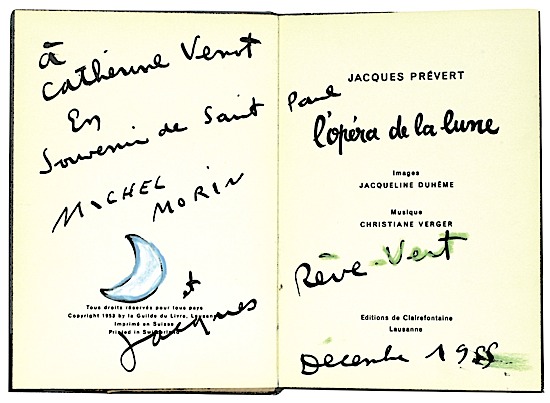 à
Catherine
En
Souvenir de Saint
MICHEL
MORIN
Tous droits réservés pour tous pays
Copyright 1953 by la Guilde du Livre, Lausanne
Imprimé en Suisse
Printed in Switzerland
et
Jacques
JACQUES PRÉVERT
Paul
l'opéra de la lune
Images
JACQUELINE DUHÊME
Musique
CHRISTIANE VERGER
Rêve-Vert
Editions de Clairefontaine
Lausanne
Décembre 1955